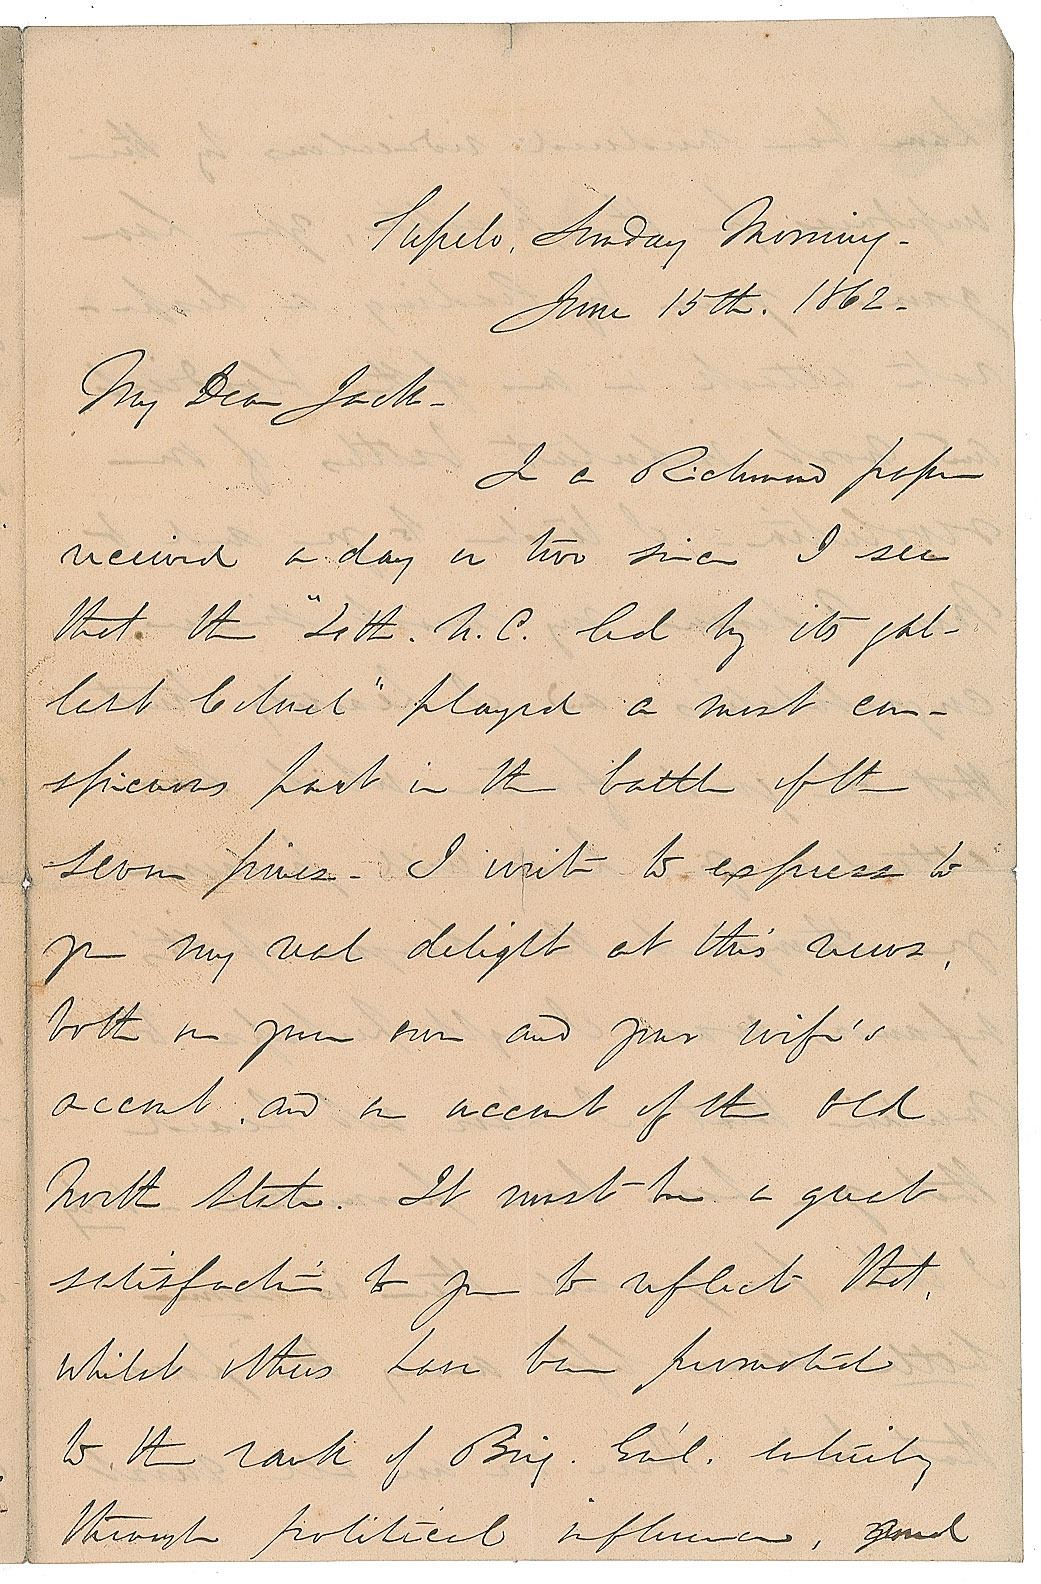 Tupelo, Sunday Morning -
June 15th. 1862 -
My Dear Jack -
In a Richmond paper
received a day or two since I see
that the "24th. N.C. led by its gal-
lant Colonel" played a most con-
spicuous part in the battle of the
seven pines - I write to express to
you my real delight at this news,
both on your own and your wife's
account, and on account of the Old
North State. It must be a great
satisfaction to you to reflect that,
whilst others have been promoted
to the rank of Brig. Gen'l. entirely
through political influence,